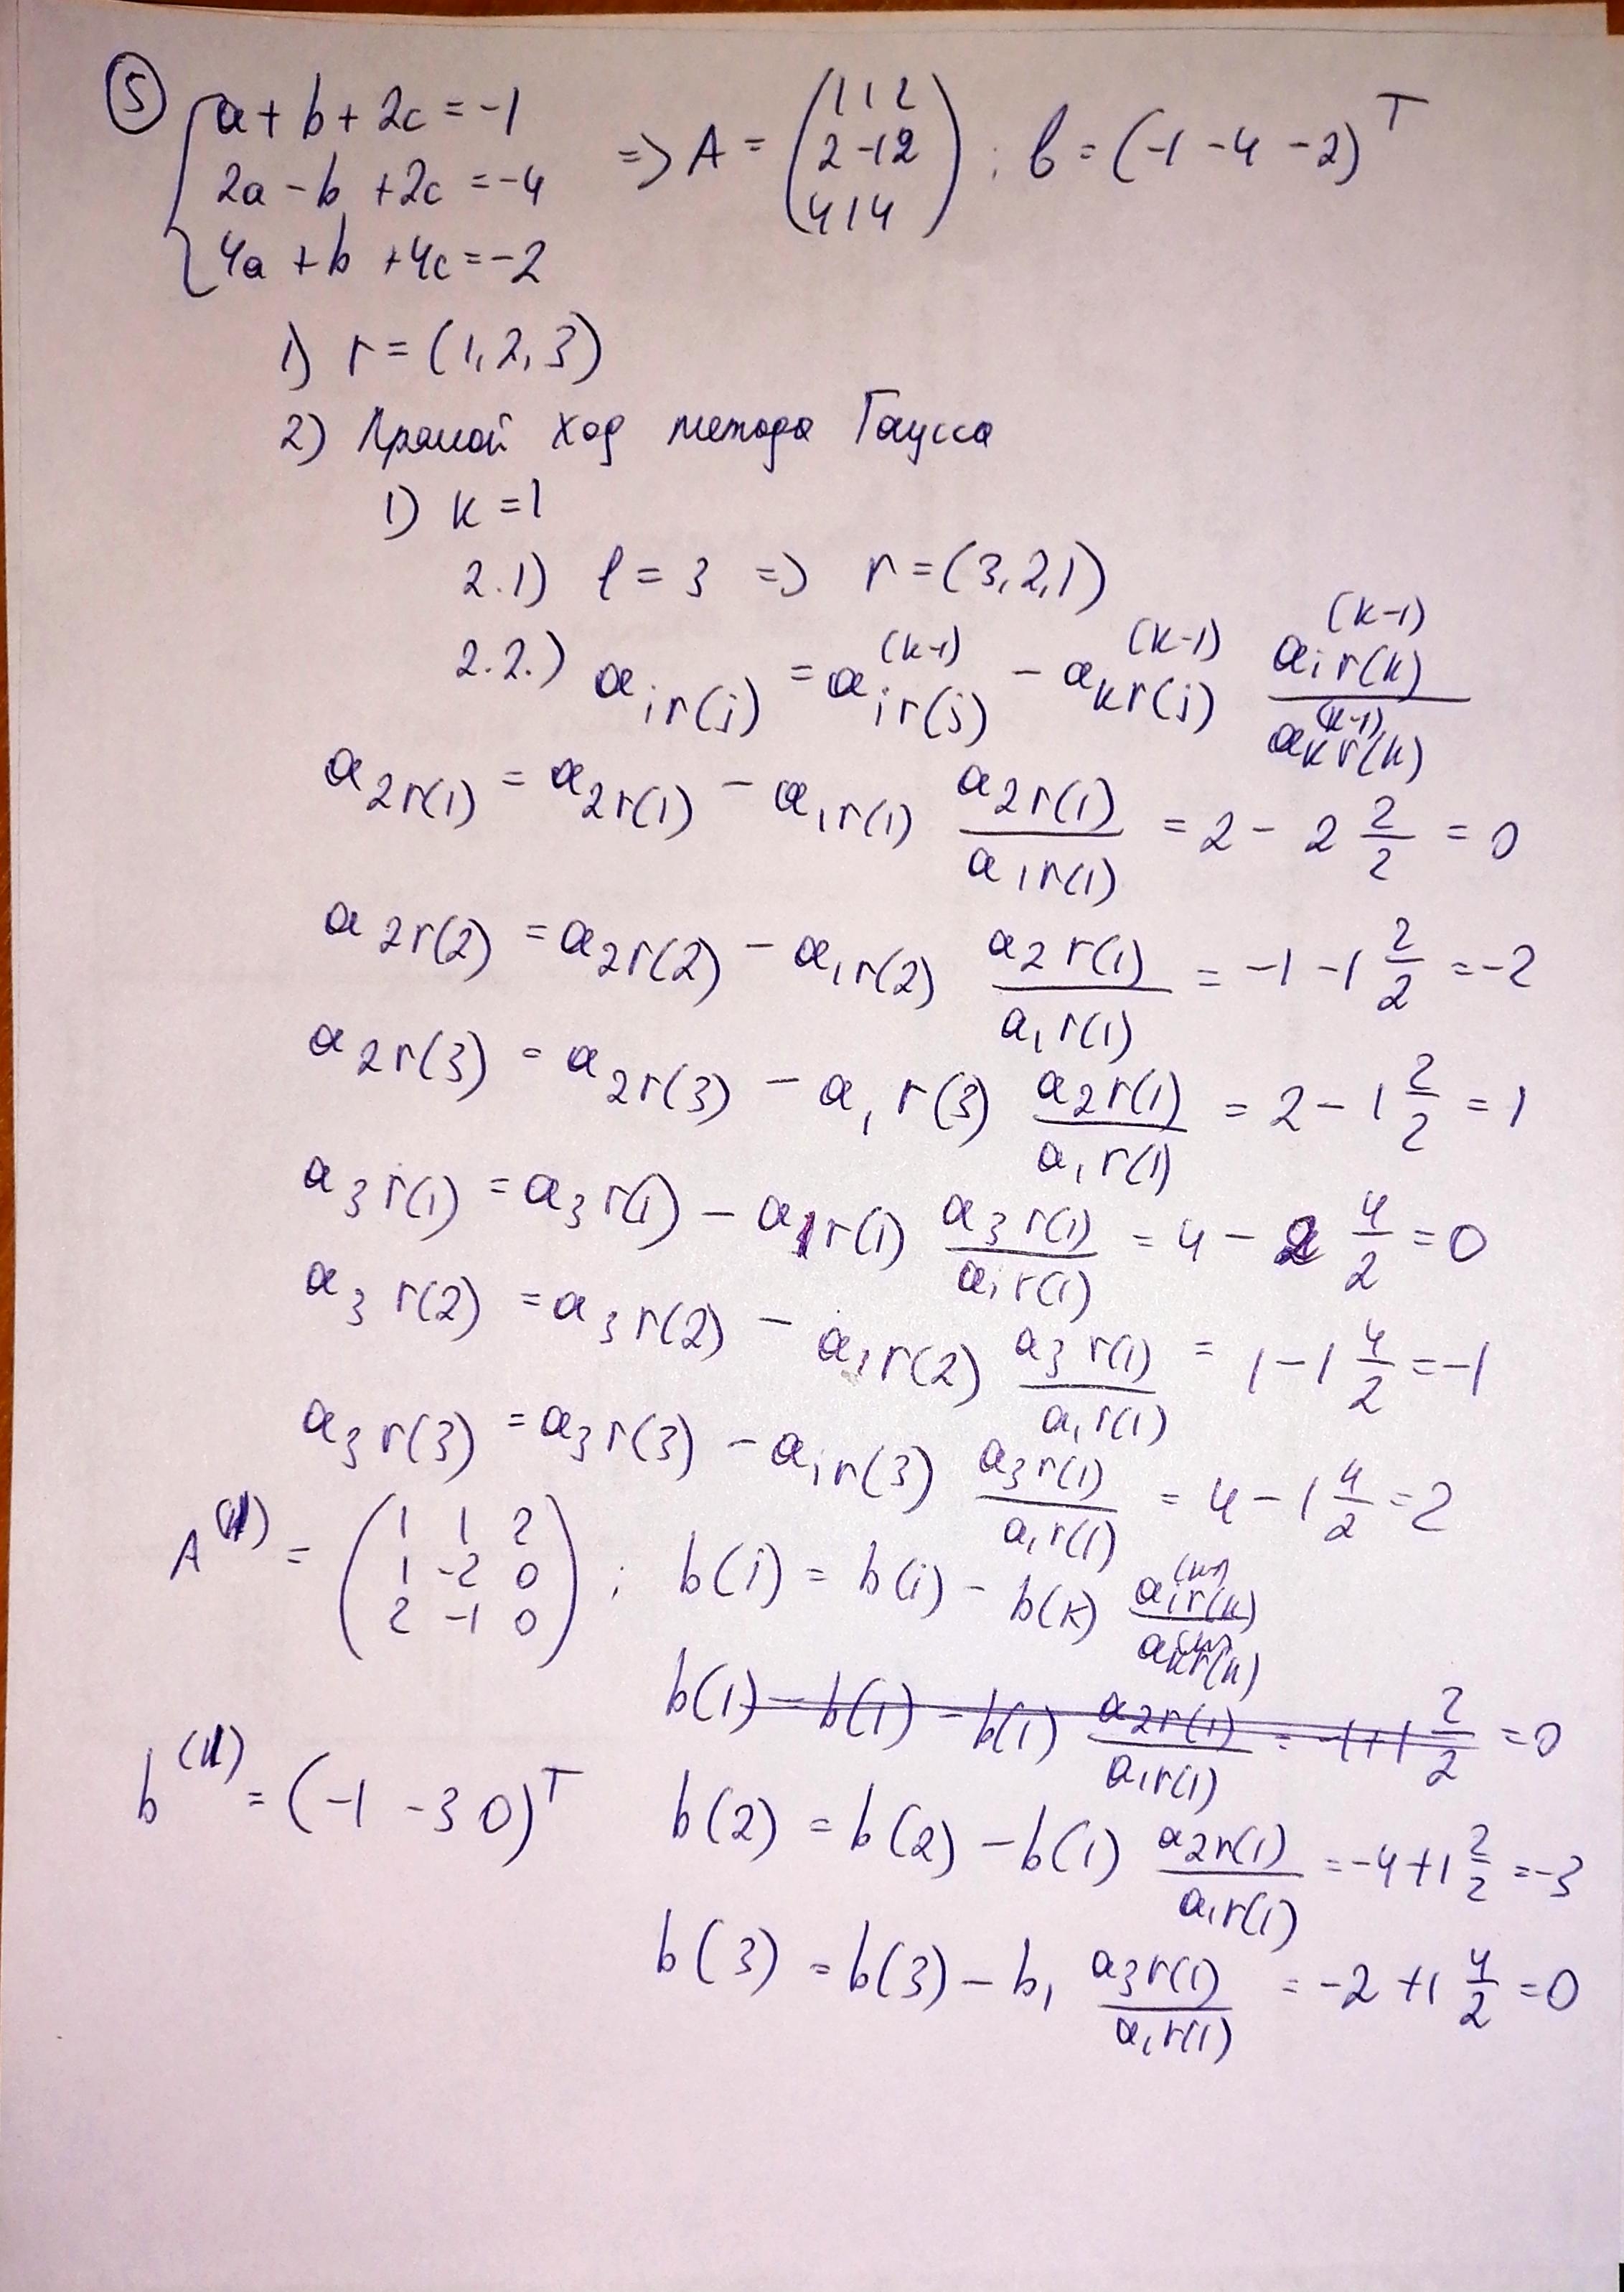 5
a + b + 2c = -1
2a - b + 2c = -4
4a + b + 4c = -2
=> A = (1 1 2
2 -1 2
4 1 4) ; b = (-1 -4 -2)^T
1) r = (1, 2, 3)
2) Прямой ход метода Гаусса
1) k = 1
2.1) l = 3 => r = (3, 2, 1)
2.2.) a_ir(j) = a_ir(j)^(k-1) - a_kr(j)^(k-1) a_ir(k)^(k-1) / a_kr(k)^(k-1)
a_2r(1) = a_2r(1) - a_1r(1) a_2r(1) / a_1r(1) = 2 - 2 2/2 = 0
a_2r(2) = a_2r(2) - a_1r(2) a_2r(1) / a_1r(1) = -1 - 1 2/2 = -2
a_2r(3) = a_2r(3) - a_1r(3) a_2r(1) / a_1r(1) = 2 - 1 2/2 = 1
a_3r(1) = a_3r(1) - a_1r(1) a_3r(1) / a_1r(1) = 4 - 2 4/2 = 0
a_3r(2) = a_3r(2) - a_1r(2) a_3r(1) / a_1r(1) = 1 - 1 4/2 = -1
a_3r(3) = a_3r(3) - a_1r(3) a_3r(1) / a_1r(1) = 4 - 1 4/2 = 2
A^(1) = (1 1 2
1 -2 0
2 -1 0) ; b(i) = b(i) - b(k) a_ir(k) / a_kr(k)
b(1) - b(1) - b(1) a_2r(1) / a_1r(1) = -1 + 1 2/2 = 0
b^(1) = (-1 -3 0)^T
b(2) = b(2) - b(1) a_2r(1) / a_1r(1) = -4 + 1 2/2 = -3
b(3) = b(3) - b_1 a_3r(1) / a_1r(1) = -2 + 1 4/2 = 0